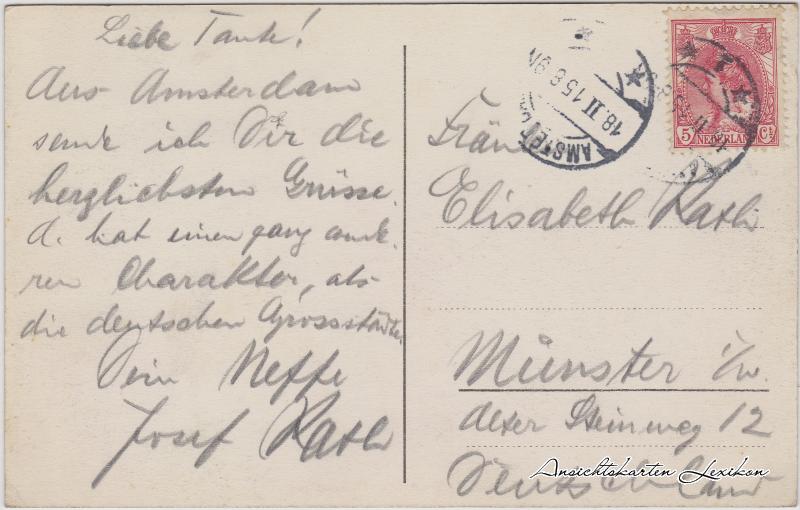 Liebe Tante!
Aus Amsterdam
sende ich Dir die
herzlichsten Grüsse.
A. hat einen ganz ande-
ren Charakter, als
die deutschen Grossstädte.
Dein Neffe
Josef Rath
Fräul
Elisabeth Rath
Münster i/w.
Steinweg 12
Deutschland
18 II 15 8-9N
AMSTER
5 Ct
NEDERLAND
Ansichtskarten Lexikon